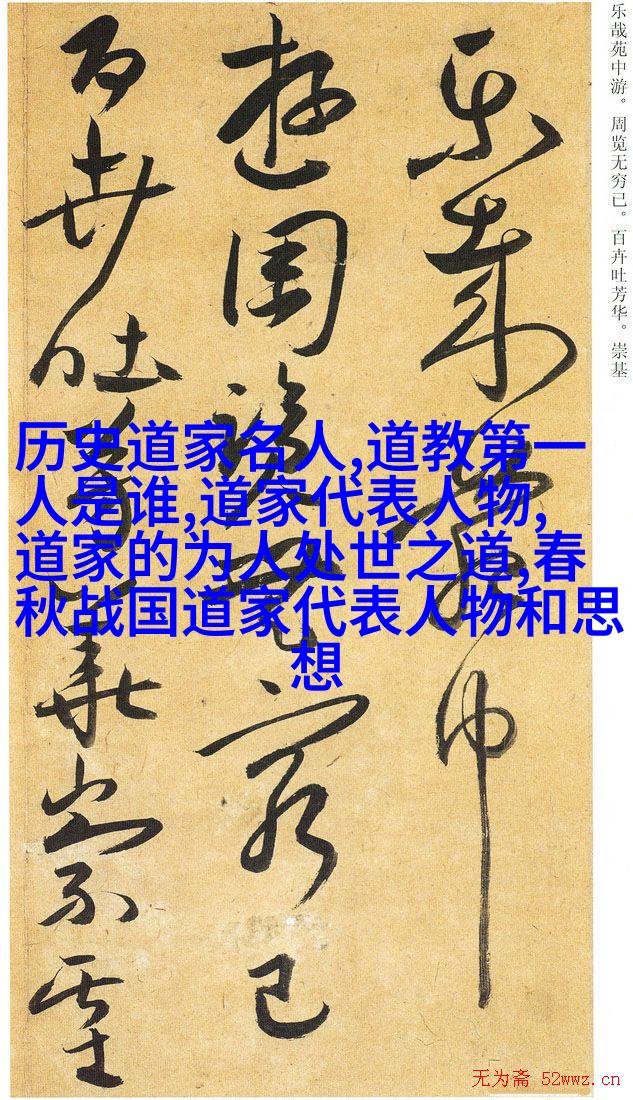 乐哉苑中游。周览无穷已。百卉吐芳华。崇基
樂哉苑中
遊周覽無窮已
百卉吐芳華崇基
历史道家名人,道教第一
人是谁,道家代表人物,
道家的为人处世之道,春
秋战国道家代表人物和思
想
无为斋 52wwz.cn